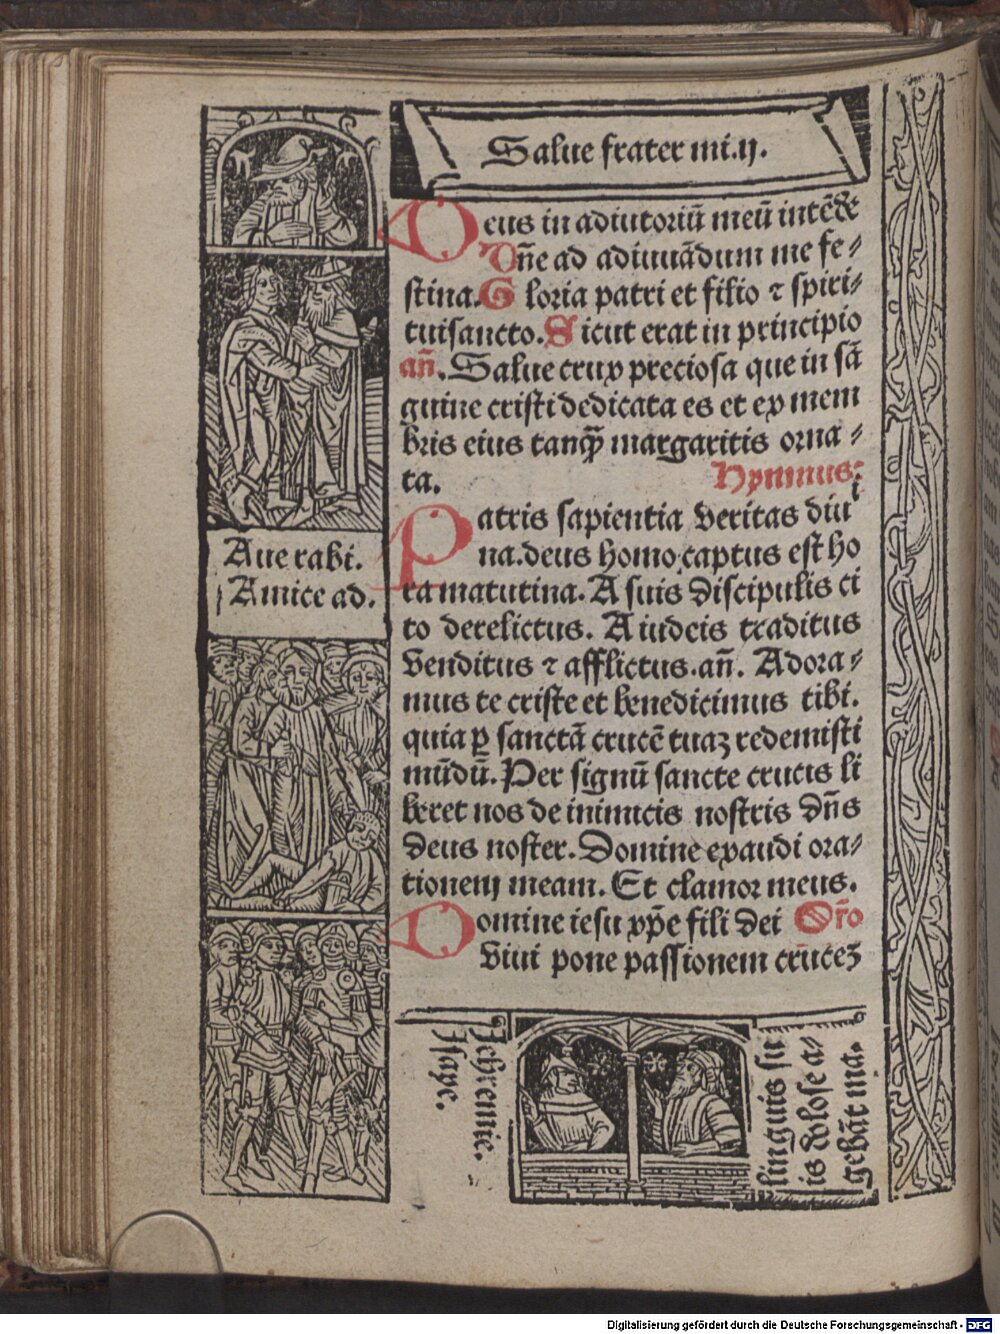 Salue frater mi.ij.
Deus in adiutoriū meū intēde
Dñe ad adiuuādum me fe⸗
stina. Gloria patri et filio ⁊ spiri⸗
tuisancto. Sicut erat in principio
añ. Salue crux preciosa que in sā
guine cristi dedicata es et ex mem
bris eius tanqꝫ margaritis orna⸗
ta. Hymnus:
Patris sapientia veritas diui
na. deus homo captus est ho
ra matutina. A suis discipulis ci
to derelictus. A iudeis traditus
venditus ⁊ afflictus. añ. Adora⸗
mus te criste et benedicimus tibi.
quia ꝑ sanctā crucē tuaꝫ redemisti
mūdū. Per signū sancte crucis li
beret nos de inimicis nostris dñs
deus noster. Domine exaudi ora⸗
tionem meam. Et clamor meus.
Domine iesu xp̄e fili dei Oro
viui pone passionem cruceꝫ
Aue rabi.
Amice ad.
Jehremie.
Jsaye.
linguis su
is dolose a⸗
gebāt ma.
Digitalisierung gefördert durch die Deutsche Forschungsgemeinschaft - DFG